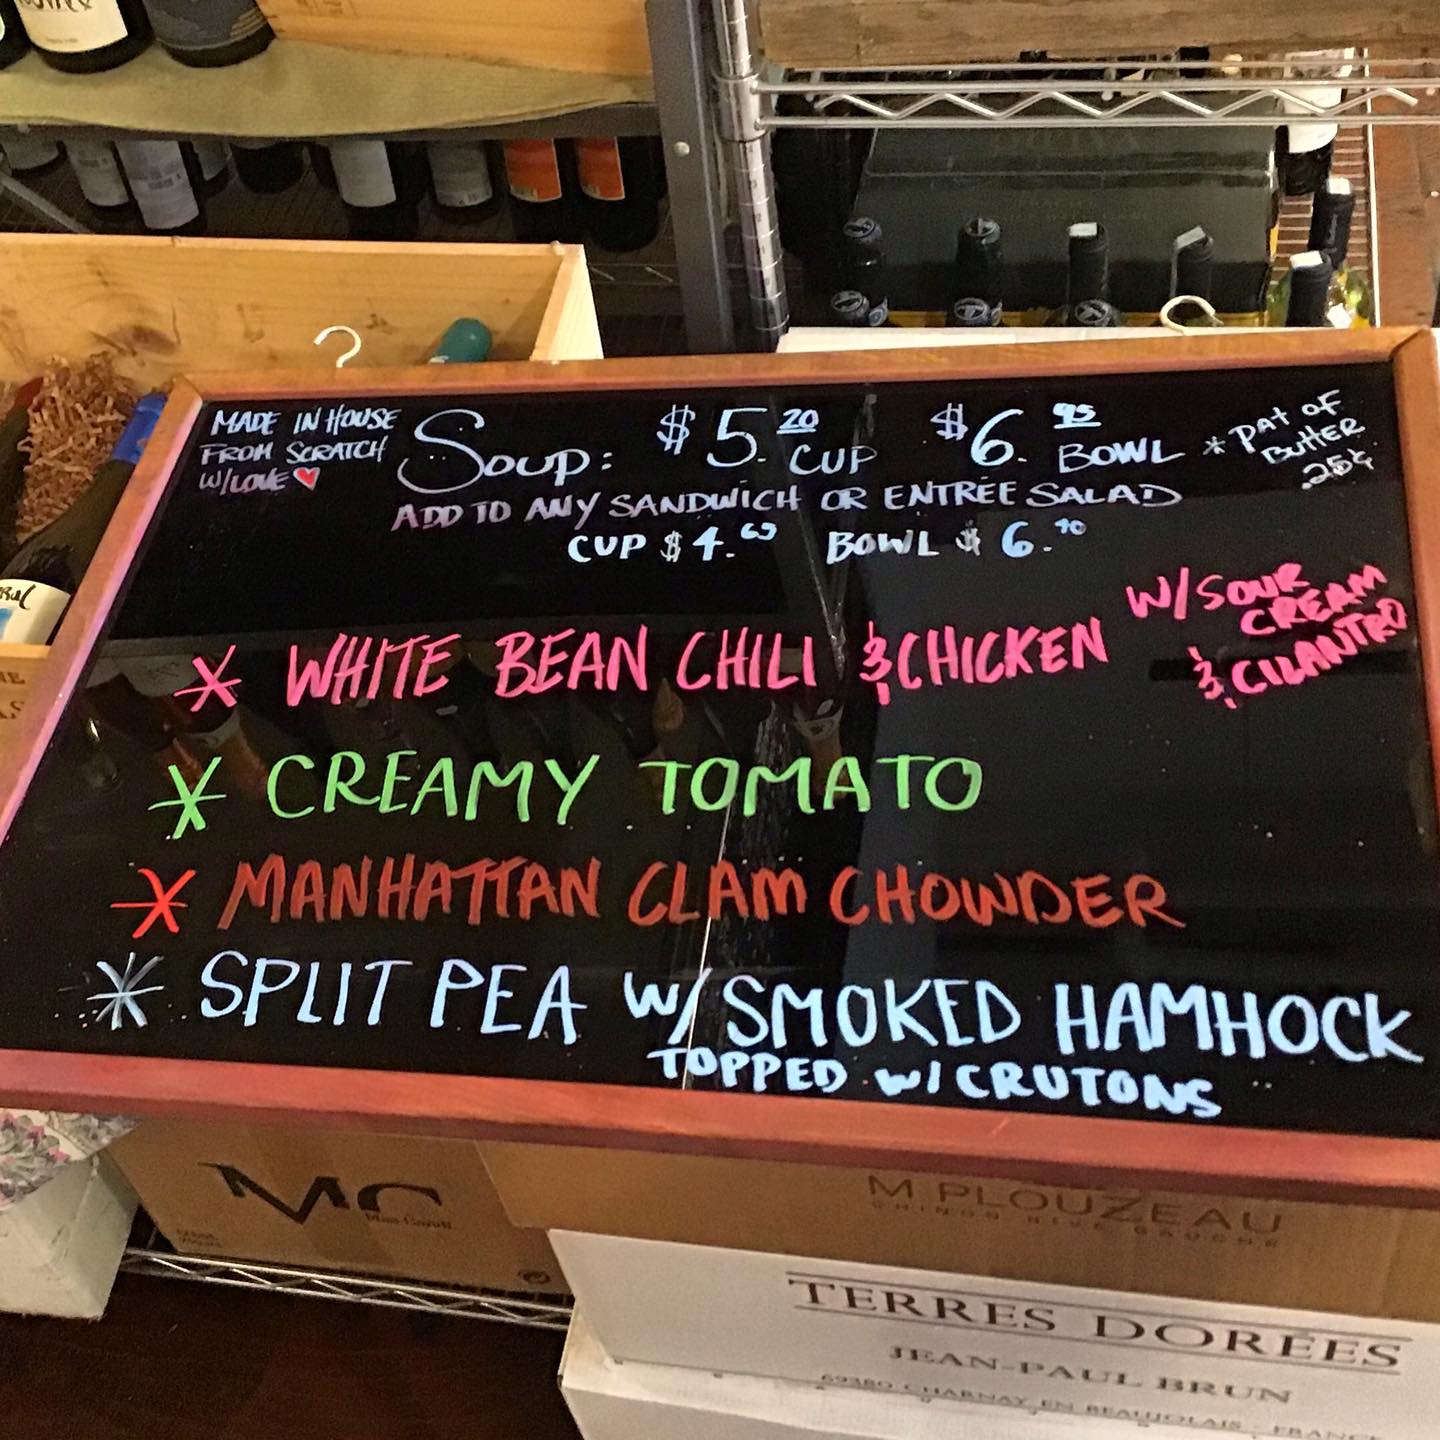 MADE IN HOUSE
FROM SCRATCH
W/LOVE
SOUP: $5.20 CUP $6.95 BOWL * PAT OF
BUTTER
.25¢
ADD TO ANY SANDWICH OR ENTRÉE SALAD
CUP $4.65 BOWL $6.40
* WHITE BEAN CHILI & CHICKEN W/SOUR
CREAM
& CILANTRO
* CREAMY TOMATO
* MANHATTAN CLAM CHOWDER
* SPLIT PEA W/SMOKED HAMHOCK
TOPPED W/CRUTONS
M PLOUZEAU
CHINON RIVE GAUCHE
TERRES DORÉES
JEAN-PAUL BRUN
69380 CHARNAY EN BEAUJOLAIS - FRANCE